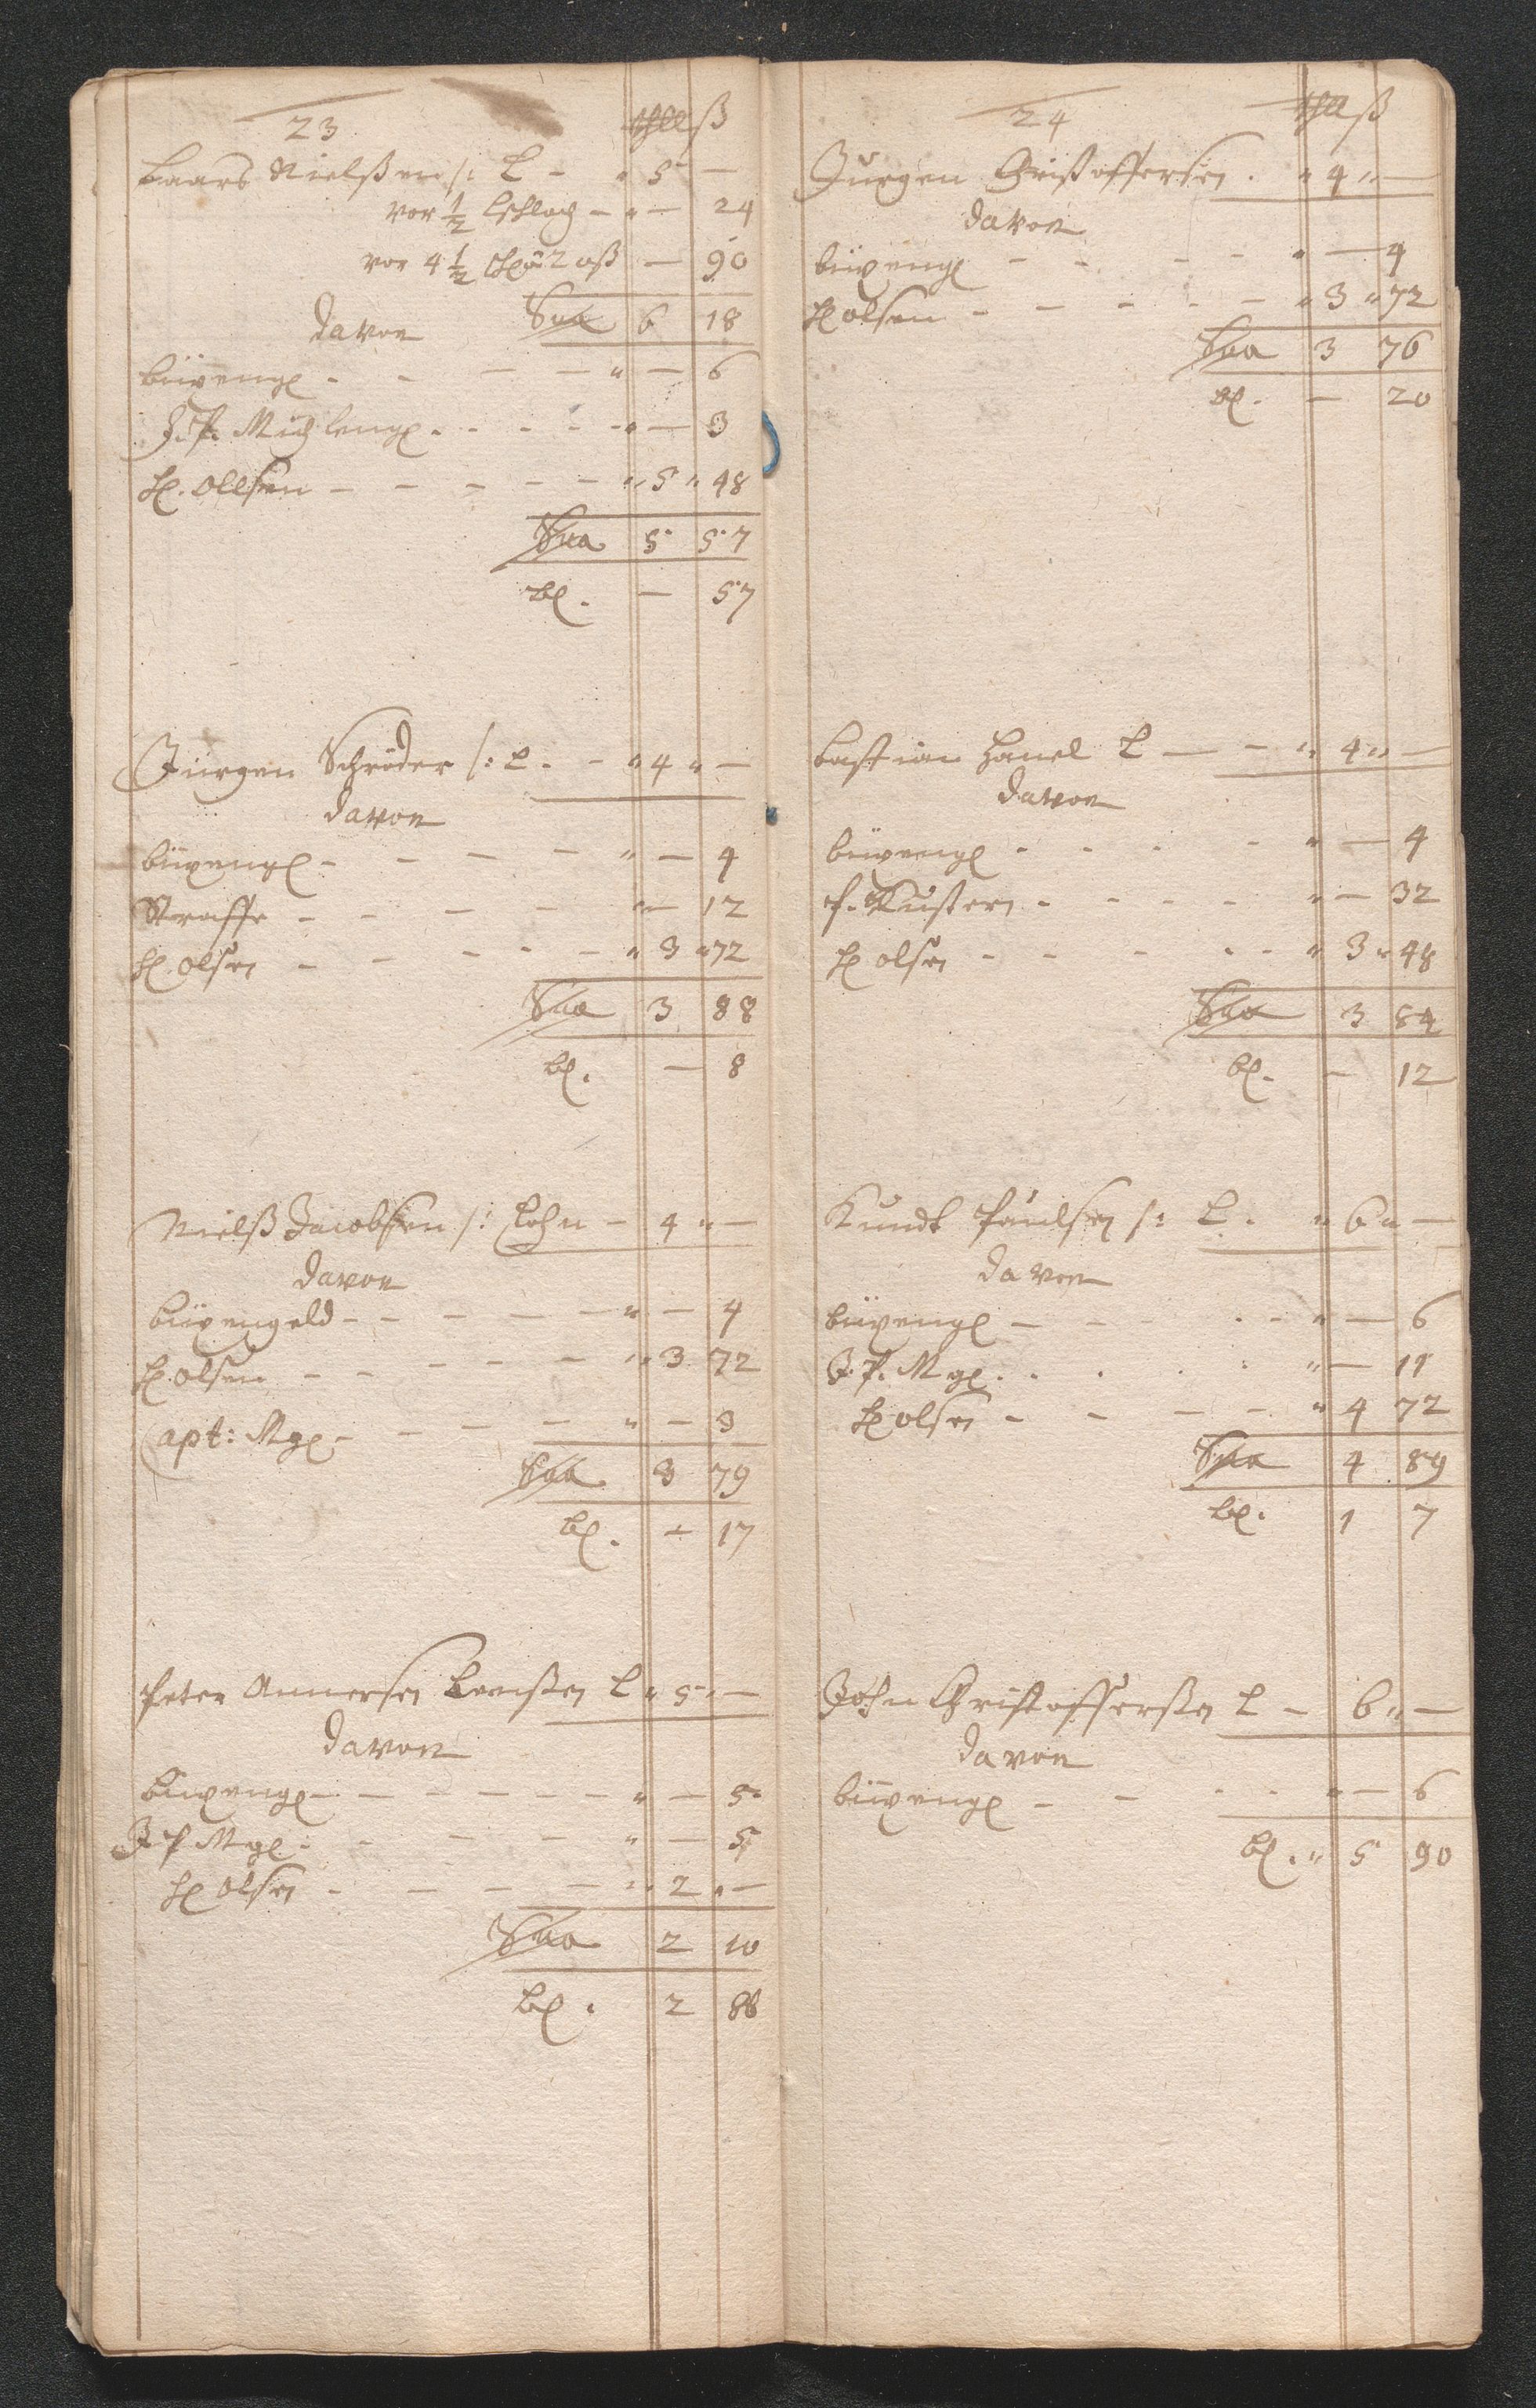 23 thll ß
Laars Nielßen /: L - " 5 -
vor 1/2 Schlag - " - 24
vor 4 1/2 2 oß - 90
Sua 6 18
davon
büxeng - - - - " - 6
J. P. Mich leng - - - - " - 3
H. Ollsen - - - - - " 5 " 48
Sua 5 57
bl. - 57
Jürgen Schröder /: L. - " 4 " -
davon
büxeng - - - - " - 4
Straffe - - - - " - 12
H. Olsen - - - - " 3 " 72
Sua 3 88
bl. - 8
Nielß Jacobsen /: Lohn - 4 " -
davon
büxengeld - - - - - " - 4
H. olsen - - - - - " 3 72
Capt: Mg - - - - " - 3
Sua 3 79
bl. - 17
Peter Annersen L " 5 " -
davon
büxeng - - - - - - " - 5
J P Mg - - - - " - 5
H Olsen - - - - " 2 " -
Sua 2 10
bl. 2 86
24 thll ß
Jürgen Christoffersen . " 4 " -
davon
büxeng - - - - " - 4
H olsen - - - - - " 3 " 72
Sua 3 76
bl. - 20
Bastian Hanel L - - " 4 " -
davon
büxeng - - - - " - 4
f. Küstern - - - - " - 32
H olsen - - - - - " 3 " 48
Sua 3 84
bl. - 12
Knudt Paulsen /: L. " 6 " -
davon
büxeng - - - - - " - 6
J. P. Mg. - - - " - 11
H olsen - - - - " 4 72
Sua 4 89
bl. 1 7
John Christoffersen L - 6 " -
davon
büxeng - - - - " - 6
bl. " 5 90